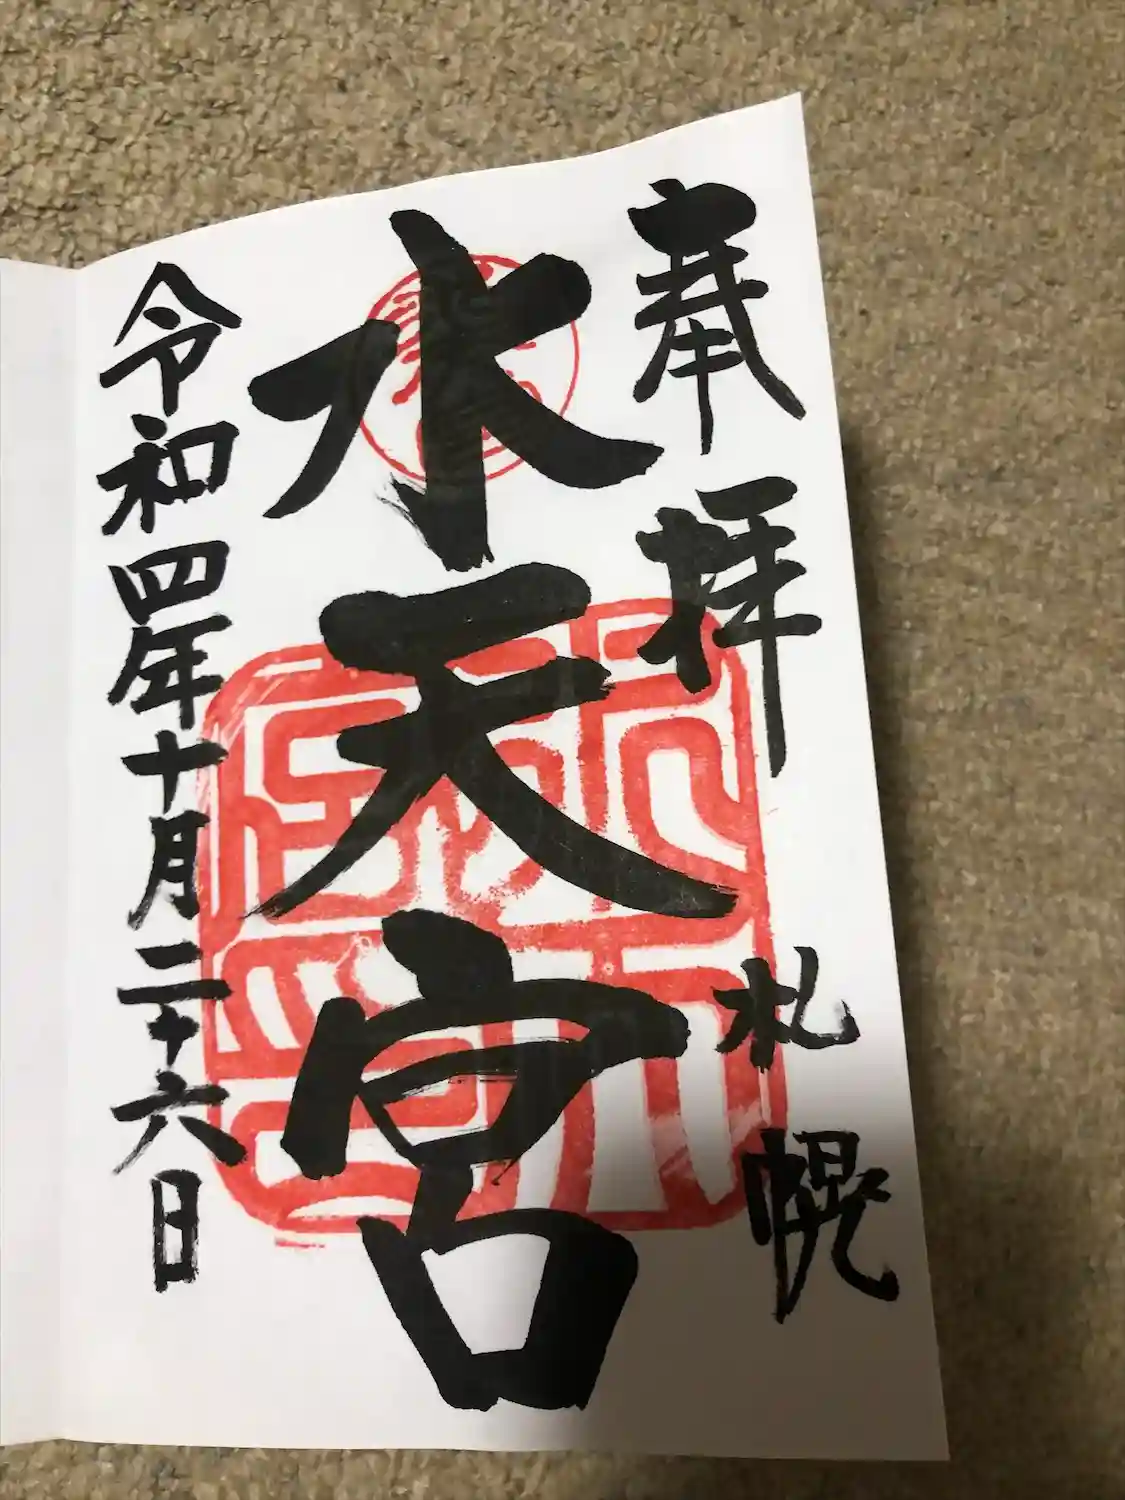 奉拝
札幌
水天宮
令和四年十月二十六日